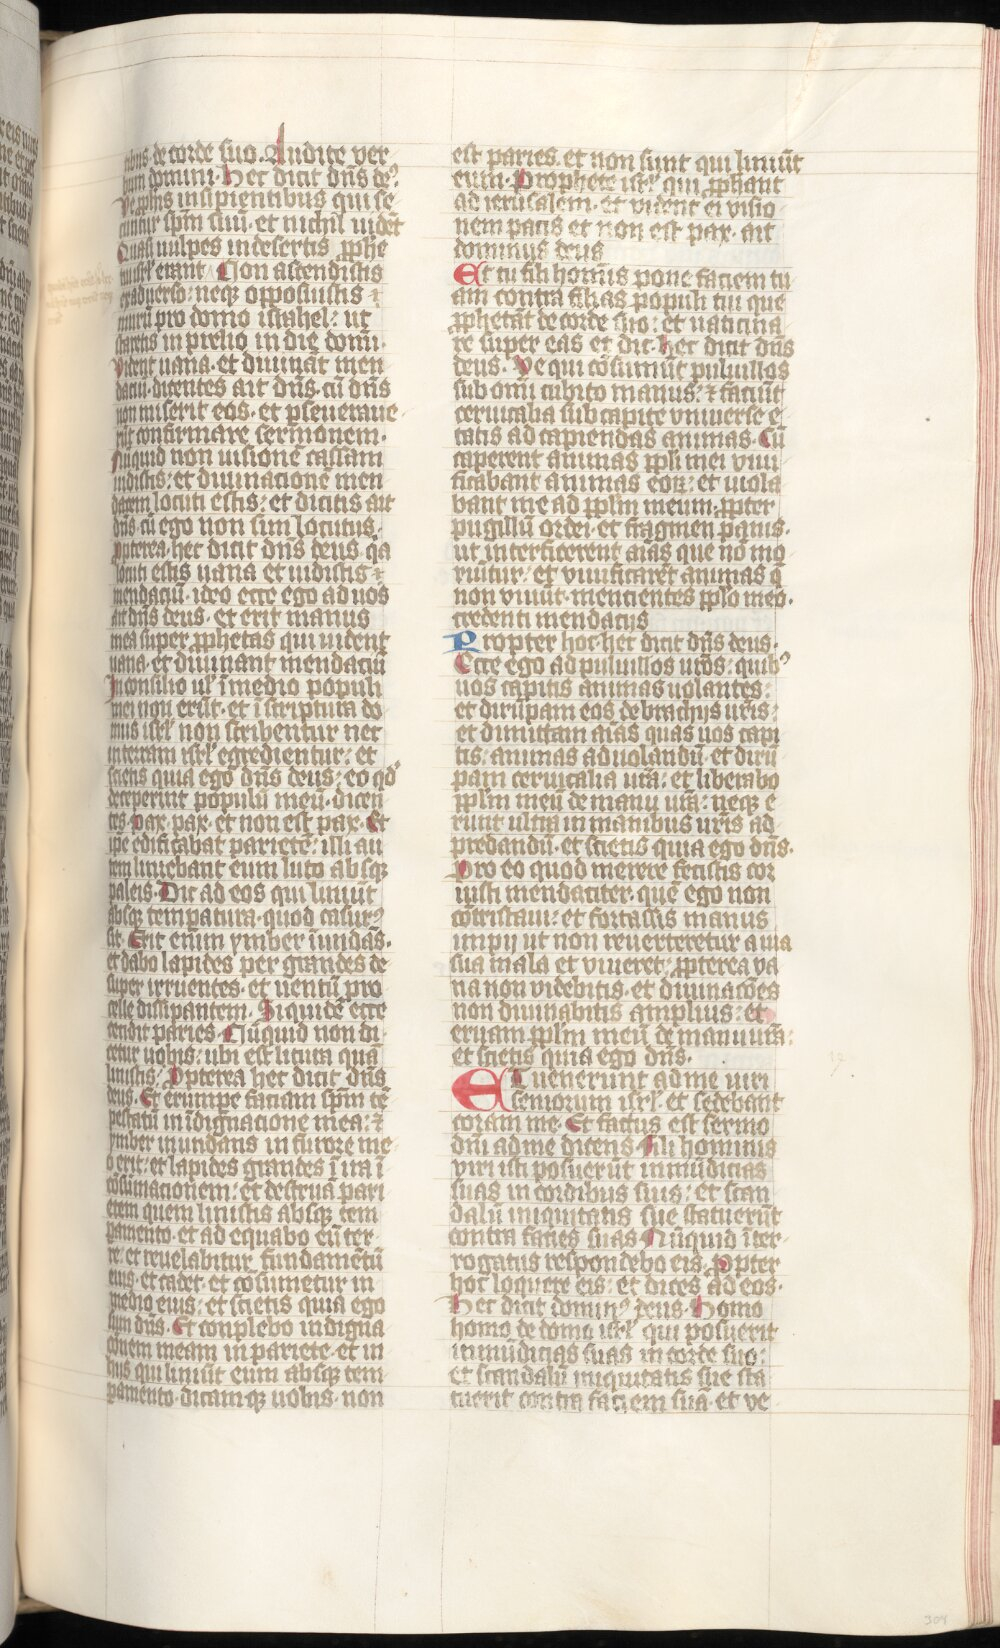 tibus de corde suo. Audite ver
bum domini. Hec dicit dn̄s deꝰ.
Ve ꝓphīs insipientibus qui se
cuntur spm̄ suū. et nichil uidēt
Quasi uulpes in desertis ꝓphe
tui isrl̄ erant. Non ascendistis
ex aduerso: neqꝫ opposuistis ⁊
murū pro domo israhel: ut
staretis in prelio in die domī.
Vident uana. et diuinat men
daciū. dicentes ait dn̄s. cū dn̄s
non miserit eos. et ꝑseueraue
rūt confirmare sermonem.
Nūquid non uisionē cassam
uidistis: et diuinacionē men
dacem locuti estis: et dicitis ait
dn̄s. cū ego non sim locutus.
Ꝓpterea hec dicit dn̄s deus. q̄a
locuti estis uana et uidistis ⁊
mendaciū. ideo ecce ego ad uos
ait dn̄s deus. et erit manus
mea super ꝓphetas qui uident
uana. et diuinant mendaciū
In consilio ul̄ ī medio populi
mei non erūt. et ī scriptura do
mus isrl̄ non scribentur nec
in terram isrl̄ egredientur: et
scietis quia ego dn̄s deus: eo qd̓
deceperint populū meū. dicen
tes. Pax. pax. et non est pax. Et
ip̄e edificabat parietē: illi au
tem liniebant eum luto absqꝫ
paleis. Dic ad eos qui liniūt
absqꝫ temꝑatura. quod casurꝰ
sit. Erit enim ymber īundās.
et dabo lapides per grandes de
super irruentes. et uentū pro
celle dissipantem. Siquidē ecce
cendit paries. Nūquid non di
cetur uobis: ubi est litura quā
linistis: Ꝓpterea hec dicit dn̄s
deus. Et erumpe faciam spm̄ tē
pestatū in īdignacione mea: ⁊
ymber inundans in furore me
o erit: et lapides grandes ī ira ī
cōsūmacionem: et destruā pari
etem quem linistis absqꝫ tem
ꝑamento. et ad equabo eū ter
re: et reuelabitur fundamētū
eius. et cadet. et cōsumetur in
medio eius: et scietis quia ego
sum dn̄s. Et complebo indigna
cōnem meam in pariete. et in
hijs qui liniūt eum absqꝫ tem
ꝑamento. dicamqꝫ uobis. non
est paries. et non sunt qui liniūt
eum. Prophete isrl̄ qui ꝓphant
ad ierusalem. et vident ei visio
nem pacis et non est pax. ait
dominus deus
Et tu fili homīs pone faciem tu
am contra filias populi tui que
ꝓphetāt de corde suo: et uaticina
re super eas et dic. hec dicit dn̄s
deus. Ve qui cōsumūt puluillos
sub omī cubito manus: ⁊ faciūt
ceruicalia sub capite vniuerse e
tatis ad capiendas animas. Cū
caperent animas ppl̄i mei viui
ficabant animas eoꝝ: et uiola
bant me ad ppl̄m meum. ꝓpter
pugillū ordei. et fragmen panis.
ut interficerent aīas que nō mo
riūtur. et viuificarēt animas q̄
non viuūt. mencientes ppl̄o meo.
credenti mendacijs
Propter hoc. hec dicit dn̄s deus.
Ecce ego ad puluillos uros̄: quibꝰ
uos capitis animas uolantes:
et dirūpam eos de brachijs uris̄:
et dimittam aīas quas uos capi
tis: animas ad uolandū. et dirū
pam ceruicalia urā: et liberabo
ppl̄m meū de manu urā: neqꝫ e
runt ultra in manibus uris̄ ad
predandū. et scietis quia ego dn̄s.
Pro eo quod merere fecistis cor
iusti mendaciter. quē ego non
cōtristaui: et fortassis manus
impij ut non reuerteretur a uia
sua mala et viueret: ꝓpterea va
na non videbitis. et diuinacōes
non diuinabitis amplius: et
eruam ppl̄m meū de manu urā:
et scietis quia ego dn̄s.
ET uenerunt ad me uiri
seniorum isrl̄. et sedebant
coram me. Et factus est sermo
dn̄i ad me dicens. Fili hominis
viri isti posuerūt inmūdicias
suas in cordibus suis: et scan
dalū iniquitatis sue statuerūt
contra facies suas. Nūquid īter-
rogatus respondebo eis. Ꝓpter
hoc loquere eis: et dices ad eos.
Hec dicit dominꝰ deus. Homo
homo de domo isrl̄ qui posuerit
inmūdicias suas in corde suo:
et scandalū iniquitatis sue sta
tuerit contra faciem suā. et ve
304